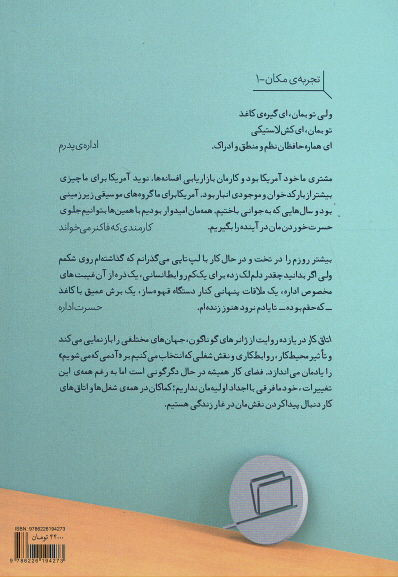 تجربه‌ی مکان-۱
ولی تو بمان، ای گیره‌ی کاغذ
تو بمان، ای کش لاستیکی
ای همار‌ه حافظان نظم و منطق و ادراک.
اداره‌ی پدرم
مشتری ما خود آمریکا بود و کارمان بازاریابی افسانه‌ها. نوید آمریکا برای ما چیزی
بیشتر از بارکدخوان و موجودی انبار بود. آمریکا برای ما گروه‌های موسیقی زیرزمینی
بود و سال‌هایی که به جوانی باختیم. همه‌مان امیدوار بودیم با همین‌ها بتوانیم جلوی
حسرت خوردن‌مان در آینده را بگیریم.
کارمندی که فاکنر می‌خواند
بیشتر روزم را در تخت و در حال کار با لپ‌تاپی می‌گذرانم که گذاشته‌ام روی شکمم
ولی اگر بدانید چقدر دلم لک زده برای یک‌کم روابط انسانی، یک ذره از آن غیبت‌های
مخصوص اداره، یک ملاقات پنهانی کنار دستگاه قهوه‌ساز، یک برش عمیق با کاغذ
ــ که حقم بوده ــ تا یادم نرود هنوز زنده‌ام.
حسرت اداره
اتاق کار در یازده روایت از ژانرهای گوناگون، جهان‌های مختلفی را بازنمایی می‌کند
و تأثیر محیط کار، روابط کاری و نقش شغلی که انتخاب می‌کنیم بر «آدمی که می‌شویم»
را یادمان می‌اندازد. فضای کار همیشه در حال دگرگونی است اما به رغم همه‌ی این
تغییرات، خود ما فرقی با اجداد اولیه‌مان نداریم؛ کماکان در همه‌ی شغل‌ها و اتاق‌های
کار دنبال پیدا کردن نقش‌مان در غار زندگی هستیم.
ISBN: 9786226194273
۴۴۰۰۰ تومان
9 786226 194273